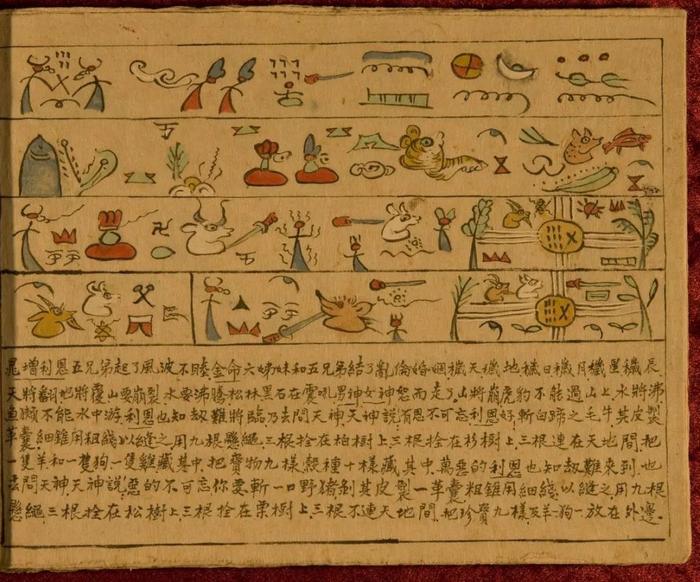 增利恩五兄弟起了風波不睦金命六姊妹和五兄弟結了亂倫婚姻穢天穢地穢日穢月穢星穢辰
天將翻地將覆山要崩裂水要沸騰松林黑石在吼男神女神怒而走了山將崩虎豹不能過山上水將沸
魚獺不能水中游利恩也知劫難將臨乃去問天神天神說有恩不可忘利恩好斬白蹄之毛牛其皮製
革囊細錐用粗綫以縫之用九根懸繩三根拴在柏樹上三根拴在杉樹上三根連在天地間把
一隻羊和一隻狗一隻雞藏其中把寶物九樣穀種十樣藏其中萬惡的利恩也知劫難來到也
去問天神天神說惡的不可忘你要斬一口野猪剝其皮製一革囊粗錐用細綫以縫之用九根
懸繩三根拴在松樹上三根拴在栗樹上三根不連天地間把珍寶九樣及羊一狗一放在外邊